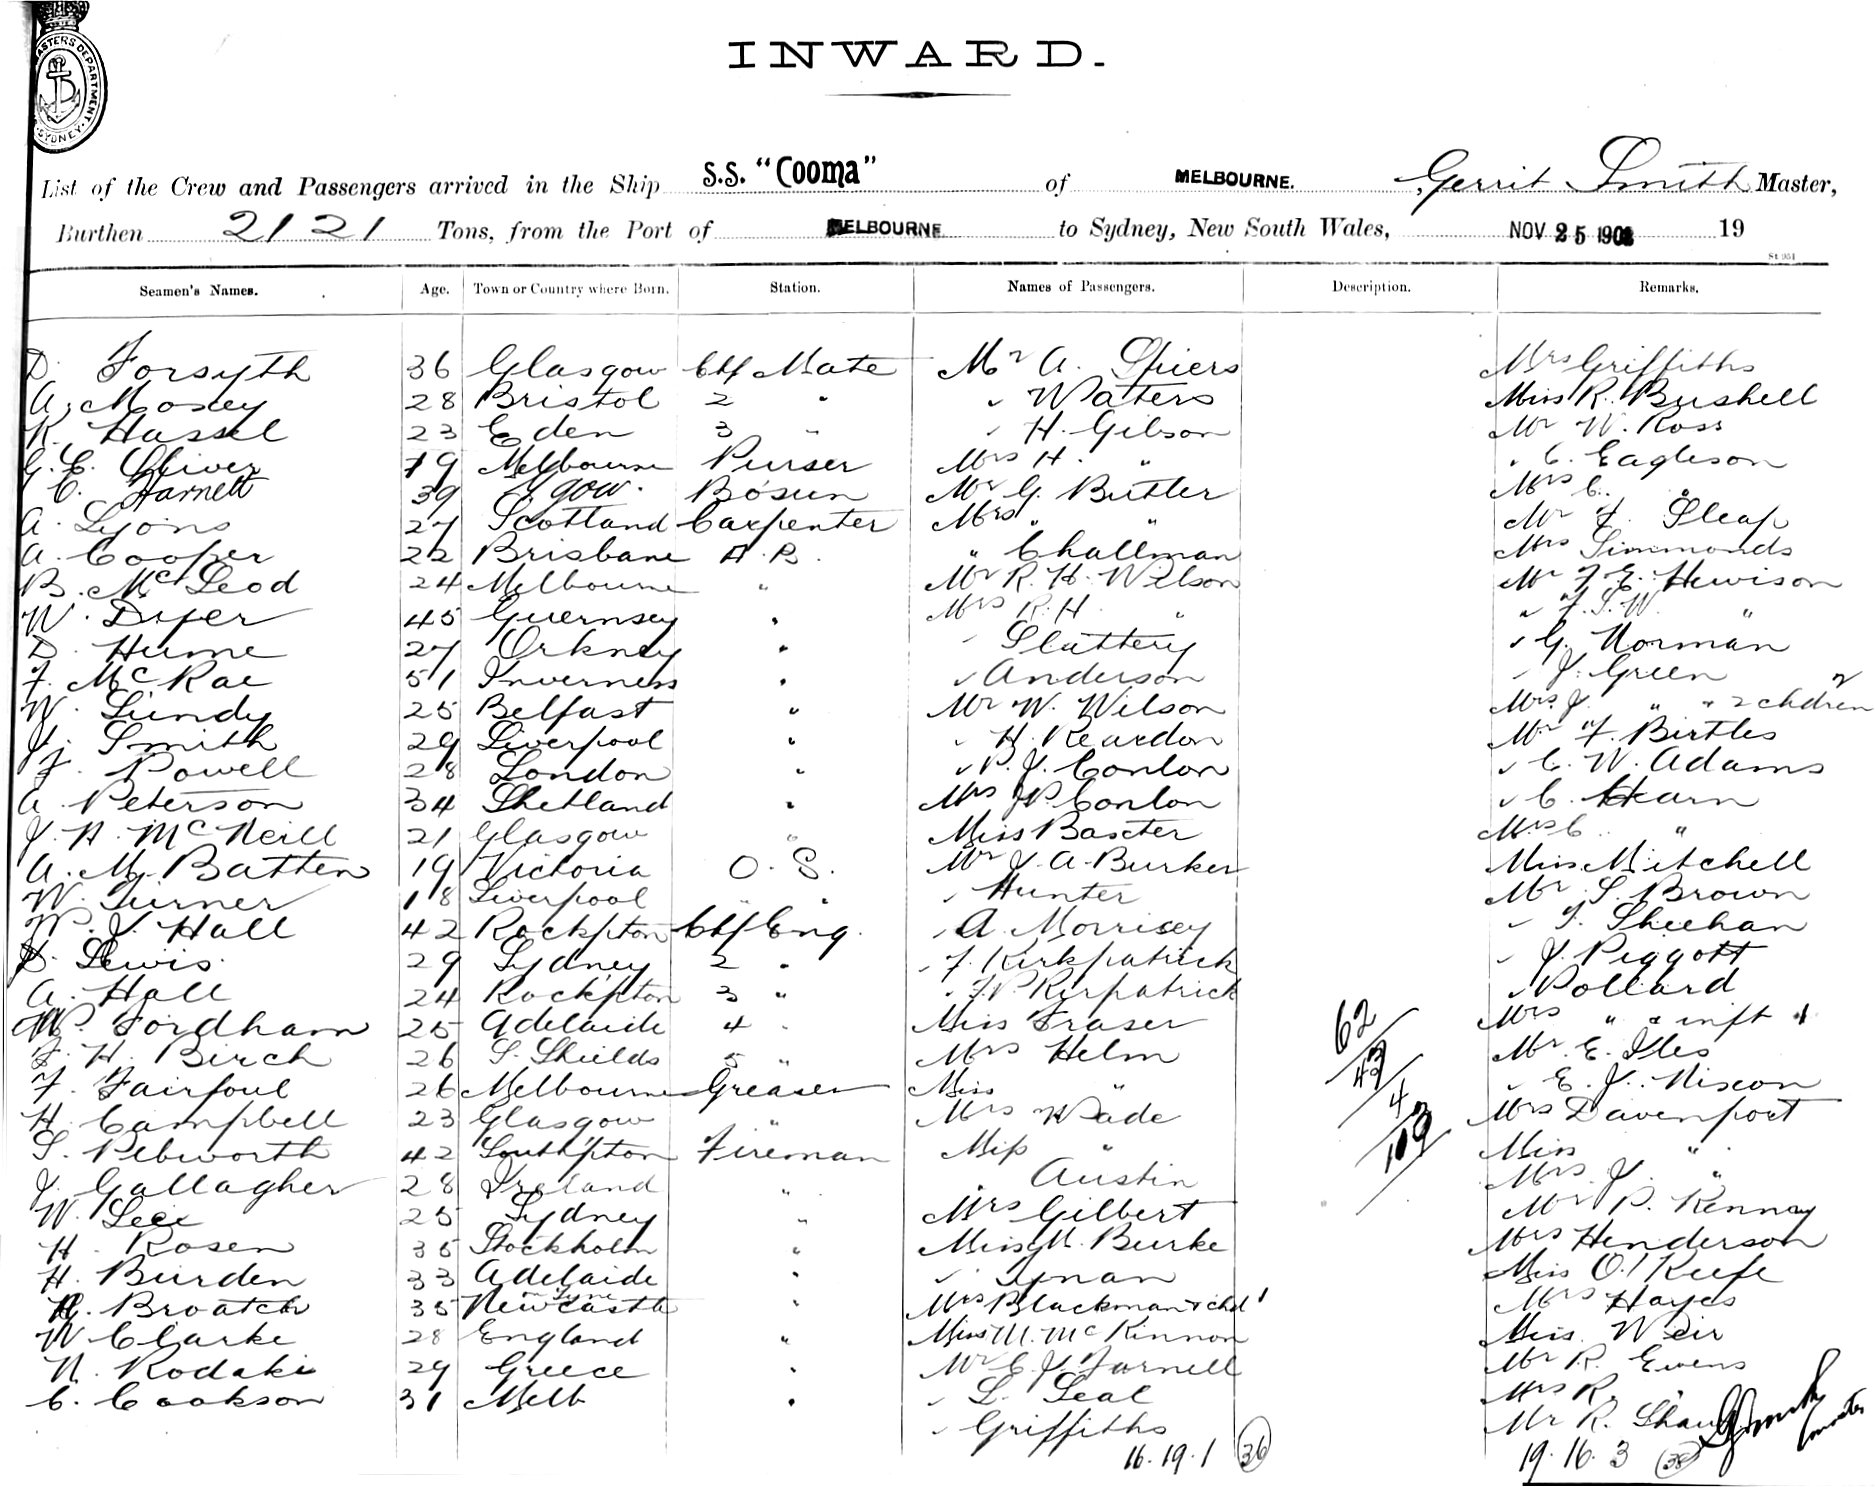 MASTERS DEPARTMENT
SYDNEY
INWARD.
List of the Crew and Passengers arrived in the Ship S.S. "Cooma" of MELBOURNE. Gerrit Smith Master,
Burthen 2121 Tons, from the Port of MELBOURNE to Sydney, New South Wales, NOV 25 190 19
St 951
Seamen's Names. Age. Town or Country where Born. Station. Names of Passengers. Description. Remarks.
D. Forsyth 36 Glasgow Chf Mate Mr A. Spiers Mrs Griffiths
A. Mosey 28 Bristol 2 " " Waters Miss R. Bushell
R. Hassel 23 Eden 3 " " H. Gibson Mr W. Ross
G. E. Oliver 19 Melbourne Purser Mrs H. " " C. Eagleson
C. Harnett 39 Gow. Bosun Mr G. Butler Mrs C. "
A. Lyons 27 Scotland Carpenter Mrs " " Mr F. Sleap
A. Cooper 22 Brisbane A.B. " Challman Mrs Simmonds
B. McLeod 24 Melbourne " Mr R. H. Wilson Mr F. E. Hewison
W. Dyer 45 Guernsey " Mrs R. H. " " F. S. W. "
D. Hume 27 Orkney " " Slattery " G. Norman
F. McRae 51 Inverness " " Anderson " J. Green
W. Lundy 25 Belfast " Mr W. Wilson Mrs J. " " 2 chdren 2
J. Smith 29 Liverpool " " H. Reardon Mr F. Birtles
F. Powell 28 London " " P. J. Conlon " C. W. Adams
A. Peterson 34 Shetland " Mrs P. Conlon " C. Hearn
J. H. McNeill 21 Glasgow " Miss Baxter Mrs C. "
A. M. Batten 19 Victoria O. S. Mr J. A. Burker Miss Mitchell
W. Turner 18 Liverpool " " " Hunter Mr S. Brown
W. J. Hall 42 Rockpton Chf Eng. " A. Morrisey " T. Sheehan
D. Lewis 29 Sydney 2 " " F. Kirkpatrick " J. Piggott
A. Hall 24 Rockpton 3 " " F. P. Kirpatrick " Pollard
W. Fordham 25 Adelaide 4 " Miss Fraser Mrs " & inft 1
F. H. Birch 26 S. Shields 5 " Mrs Helm Mr. E. Iles
F. Fairfoul 26 Melbourne Greaser Miss " " E. J. Nixon
H. Campbell 23 Glasgow " Mrs Wade Mrs Davenport
S. Pebworth 42 Southpton Fireman Miss " Miss "
J. Gallagher 28 Ireland " " Austin Mrs J. "
W. Lee 25 Sydney " Mrs Gilbert Mr P. Kennay
H. Rosen 35 Stockholm " Miss M. Burke Mrs Henderson
H. Burden 33 Adelaide " " Tynan Miss O'Keefe
R. Broatch 35 Newcastle on Tyne " Mrs Blackman & chd 1 Mrs Hayes
W Clarke 28 England " Miss M. McKinnon Miss. Weir
N. Rodakis 29 Greece " Mr C. J. Farnell Mr R. Ewens
C. Cookson 31 Melb " " L. Leal Mrs R. "
" Griffiths Mr R. Shaw
62
43
4
109
16. 19. 1 36
19. 16. 3 38
G Smith
master